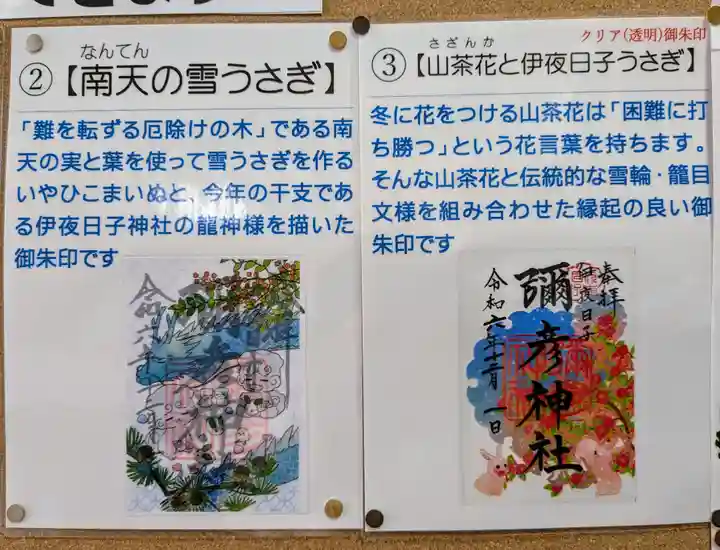 なんてん
②【南天の雪うさぎ】
「難を転ずる厄除けの木」である南
天の実と葉を使って雪うさぎを作る
いやひこまいぬと、今年の干支であ
る伊夜日子神社の龍神様を描いた
御朱印です
クリア(透明)御朱印
さざんか
③【山茶花と伊夜日子うさぎ】
冬に花をつける山茶花は「困難に打
ち勝つ」という花言葉を持ちます。
そんな山茶花と伝統的な雪輪・籠目
文様を組み合わせた縁起の良い御
朱印です
奉拝
伊夜日子
彌彦神社
令和六年十二月一日